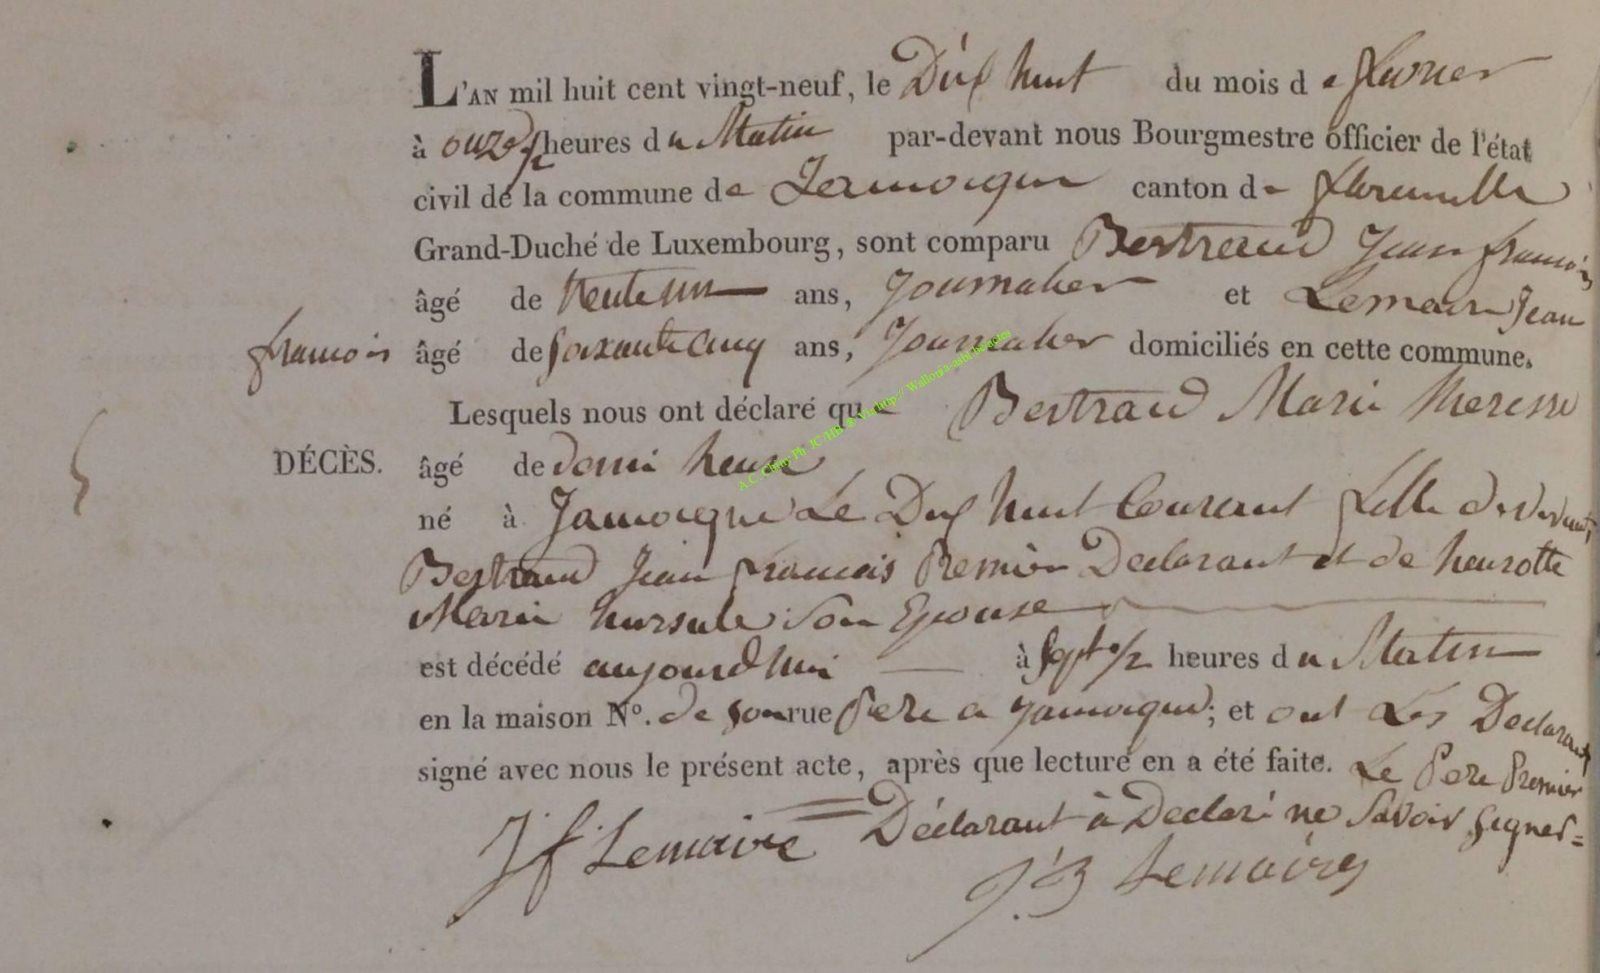 L'AN mil huit cent vingt-neuf, le Dix huit du mois de fevrier
à onze heures du Matin par-devant nous Bourgmestre officier de l'état
civil de la commune de Jamoigne canton de florenville
Grand-Duché de Luxembourg, sont comparu Bertrand Jean francois
âgé de trente un ans, Journalier et Lemaire Jean
francois âgé de soixante cinq ans, Journalier domiciliés en cette commune.
Lesquels nous ont déclaré que Bertrand Marie theresse
DÉCÈS. âgé de demi heure
né à Jamoigne Le Dix huit Courant fille de vivants
Bertrand Jean francois Premier Declarant et de henrotte
Marie hursule son Epouse
est décédé aujourdhui à sept 1/2 heures du Matin
en la maison N°. de son rue Pere a Jamoigne; et ont Les Declarants
signé avec nous le présent acte, après que lecture en a été faite. Le Pere Premier
Déclarant à Declaré ne savoir signer =
J f Lemaire
J. B Lemaire